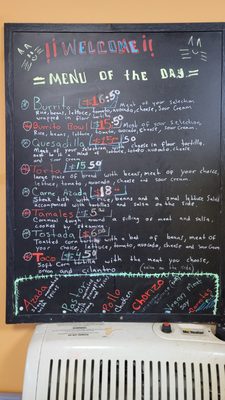 !!WELCOME!!
MENU OF THE DAY
Burrito $16.50 Meat of your selection
Rice, beans, lettuce, tomato, avocado, cheese, Sour Cream
wrapped in flour tortilla
Burrito Bowl $15.50 Meat of your selection,
Rice, beans, lettuce, tomato, avocado, cheese, Sour Cream
Quesadilla
with cheese in flour tortilla,
lettuce, tomato, avocado, cheese
and sour cream
Torta $15.50
large piece of bread with beans, meat of your choice,
lettuce, tomato, avocado, cheese and sour cream
Carne Azada $18
Steak dish with rice, beans and a small lettuce salad
accompanied with tortillas and salsa on the side
Tamales
Common dough with a filling of meat and salsa,
cooked by steaming
Tostada
Toasted corn tortilla with a bed of beans, meat of
your choice, lettuce, tomato, avocado, cheese and sour cream
Taco $4.50
Soft Corn tortilla with the meat you choose,
onion and cilantro (salsa on the side)
Azada
Pastor
Pollo
chicken
Chorizo